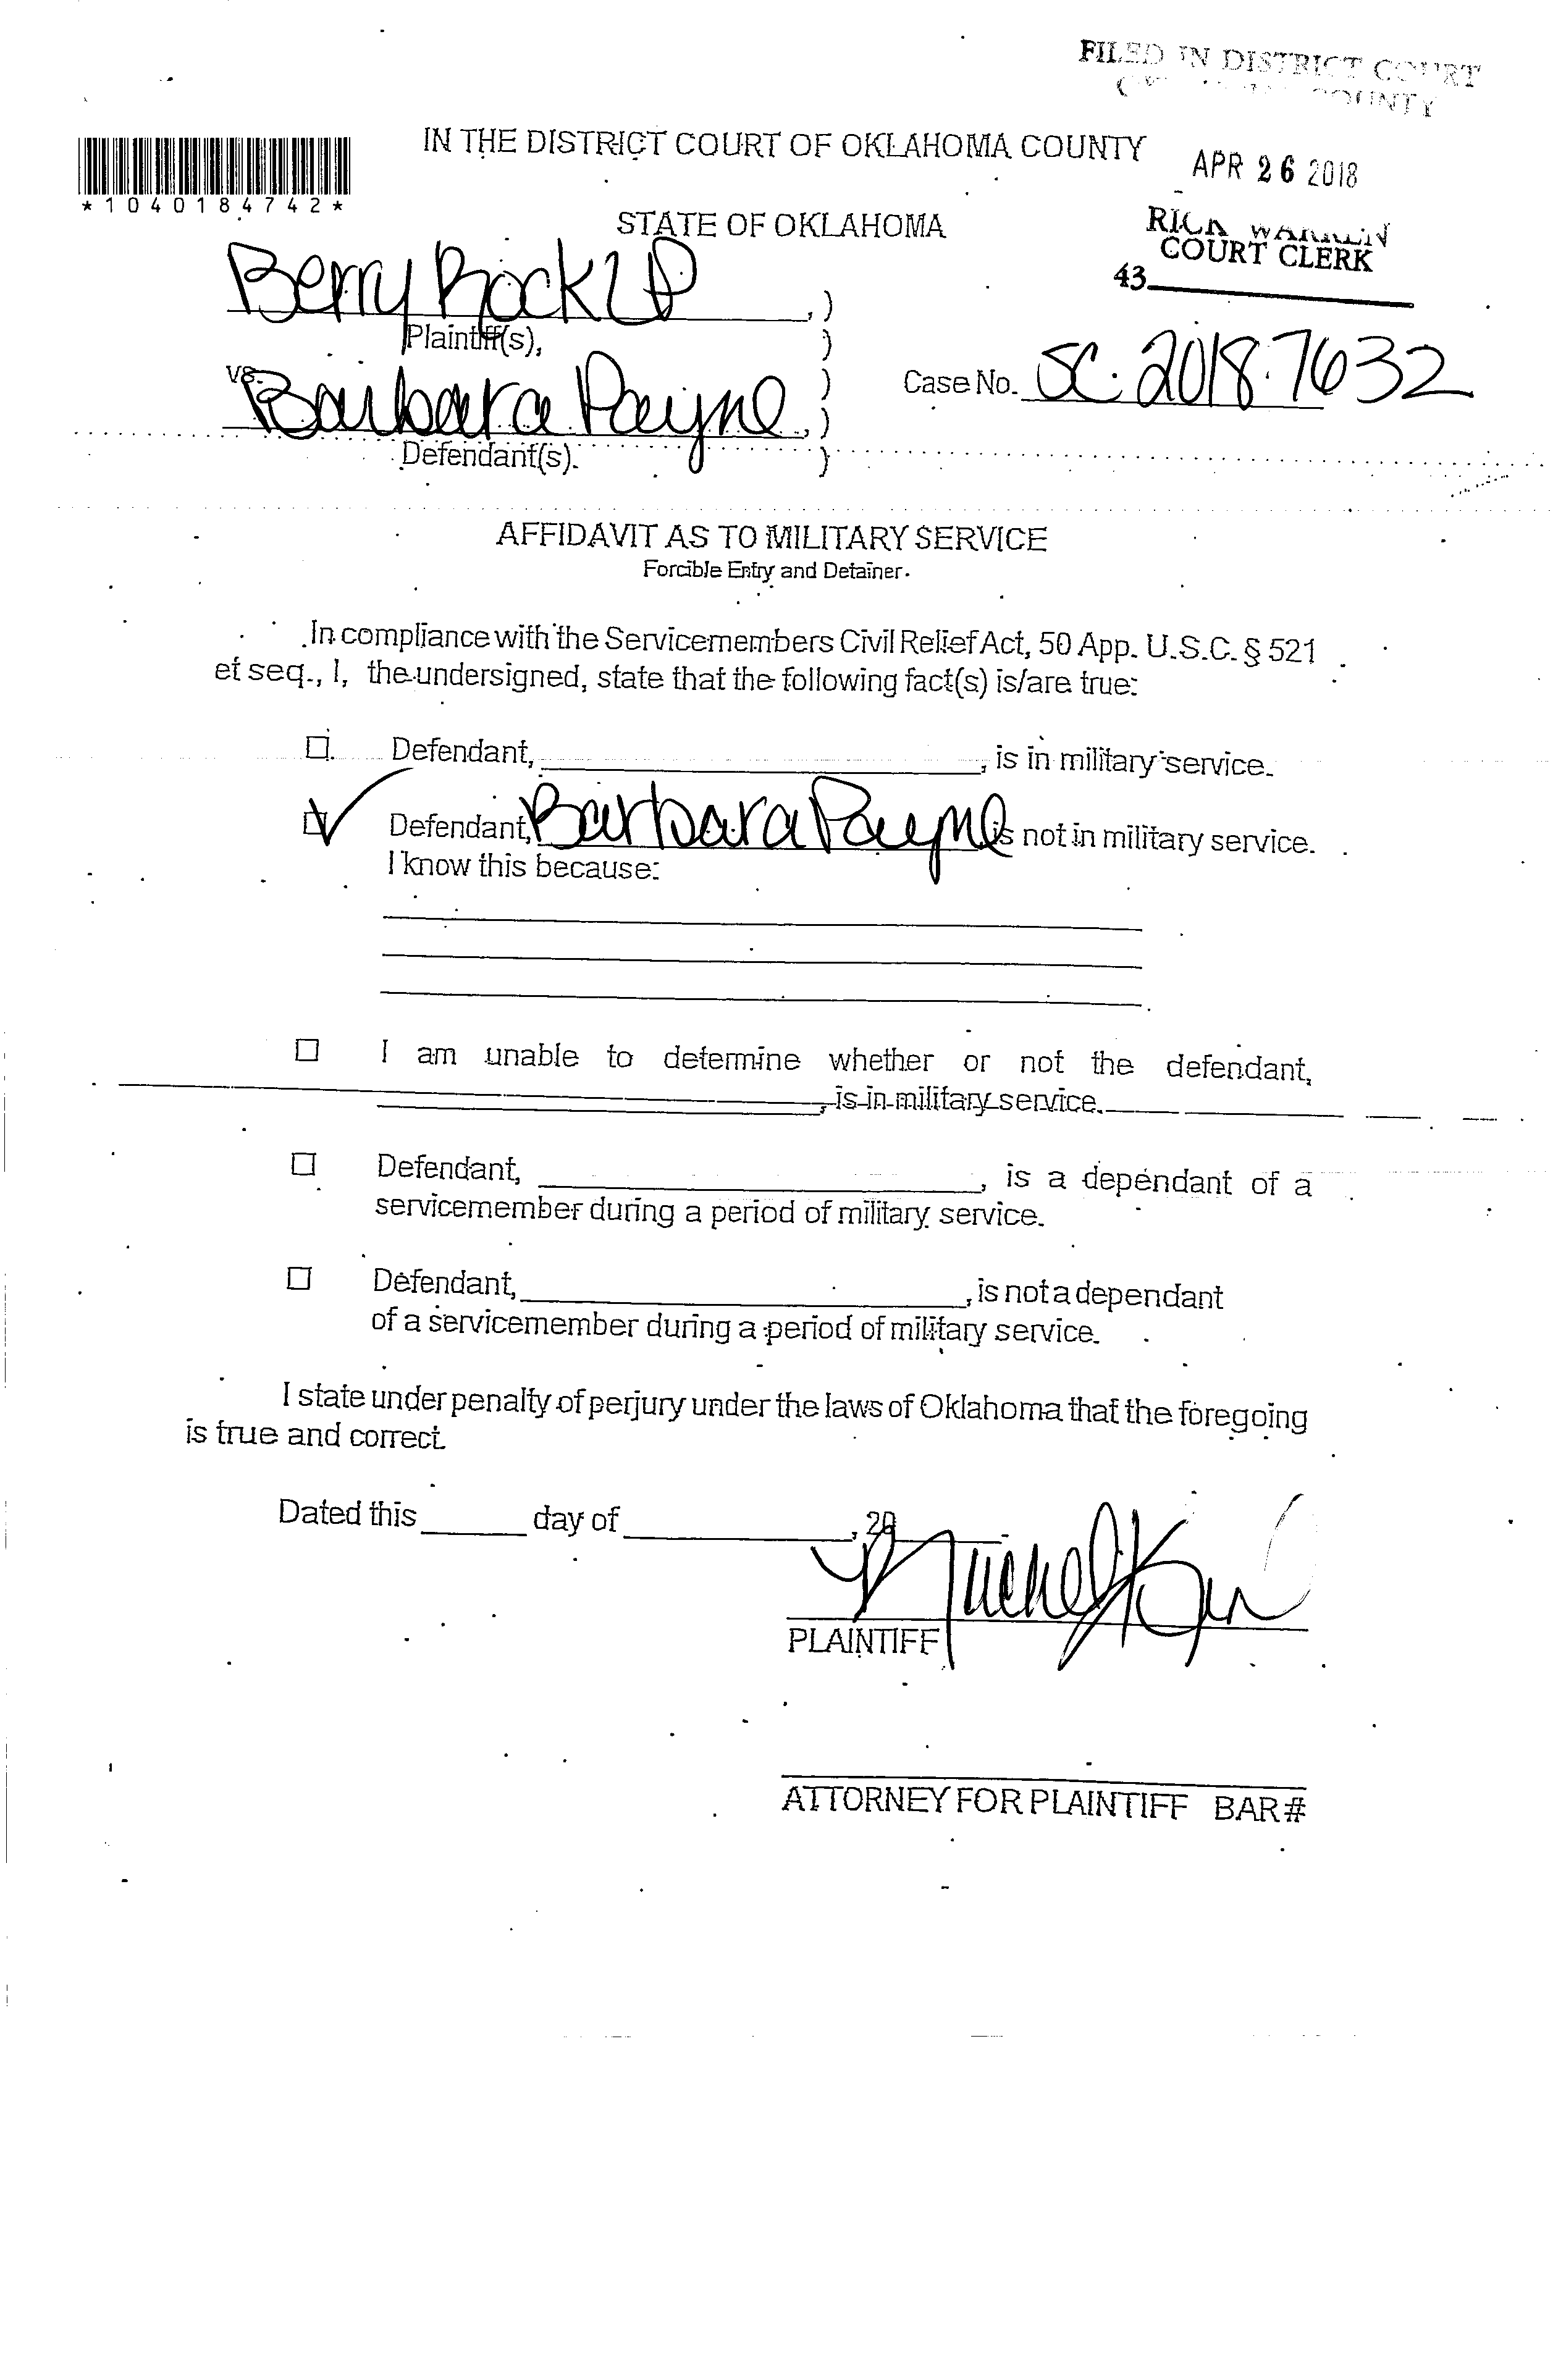 FILED IN DISTRICT COURT
COUNTY
IN THE DISTRICT COURT OF OKLAHOMA COUNTY
APR 26 2018
*1040184742*
STATE OF OKLAHOMA
RICK WARREN
COURT CLERK
43
Berry Rock LP, )
Plaintiff(s), )
vs. )
Case No. SC-2018-7632
Barbara Payne, )
Defendant(s). )
AFFIDAVIT AS TO MILITARY SERVICE
Forcible Entry and Detainer
In compliance with the Servicemembers Civil Relief Act, 50 App. U.S.C. § 521
et seq., I, the undersigned, state that the following fact(s) is/are true:
☐ Defendant, , is in military service.
☑ Defendant, Barbara Payne is not in military service.
I know this because:
☐ I am unable to determine whether or not the defendant,
, is in military service.
☐ Defendant, , is a dependant of a
servicemember during a period of military service.
☐ Defendant, , is not a dependant
of a servicemember during a period of military service.
I state under penalty of perjury under the laws of Oklahoma that the foregoing
is true and correct.
Dated this ____ day of ____, 20
PLAINTIFF
ATTORNEY FOR PLAINTIFF BAR#